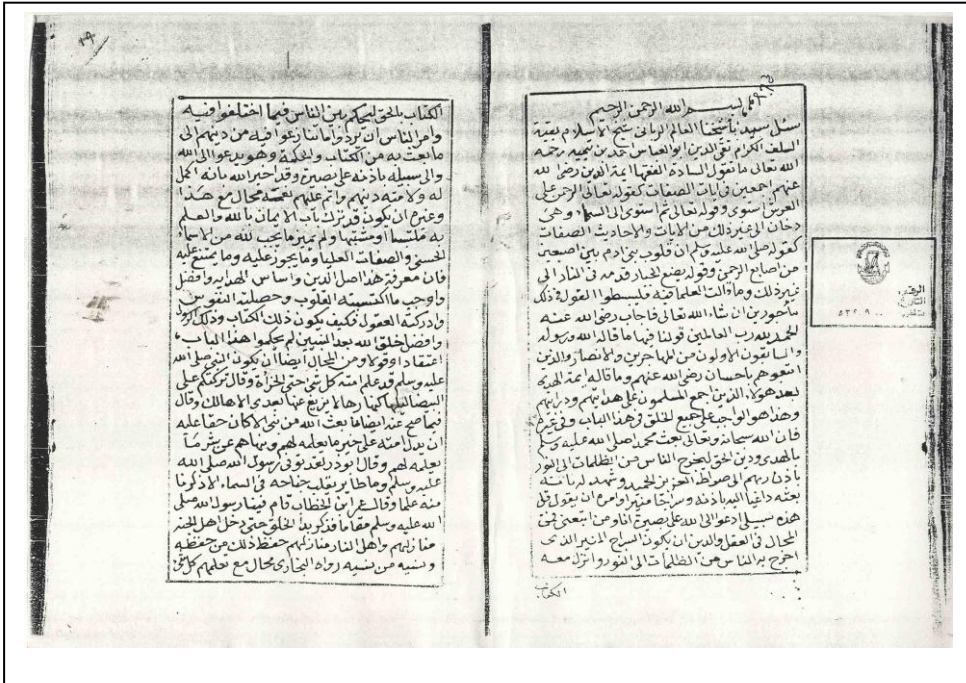 بسم الله الرحمن الرحيم
سئل سيدنا شيخنا العالم الرباني شيخ الاسلام بقية
السلف الكرام تقي الدين ابو العباس احمد بن تيميه رحمه
الله تعالى ما تقول السادة الفقها ايمة الدين رضي الله
عنهم اجمعين في ايات الصفات كقوله تعالى الرحمن على
العرش استوى وقوله تعالى ثم استوى الى السما وهي
دخان الى غير ذلك من الايات والاحاديث الصفات
كقوله صلى الله عليه وسلم ان قلوب بني ادم بين اصبعين
من اصابع الرحمن وقوله يضع الجبار قدمه في النار الى
غير ذلك وما قالت العلما فيه فابسطوا القول في ذلك
مأجورين ان شاء الله تعالى فاجاب رضي الله عنه
الحمد لله رب العالمين قولنا فيها ما قاله الله ورسوله
والسابقون الاولون من المهاجرين والانصار والذين
اتبعوهم باحسان رضي الله عنهم وما قاله ايمة الهدى
بعد هولاء الذين اجمع المسلمون على هدايتهم ودرايتهم
وهذا هو الواجب على جميع الخلق في هذا الباب وفي غيره
فان الله سبحانه وتعالى بعث محمدا صلى الله عليه وسلم
بالهدى ودين الحق ليخرج الناس من الظلمات الى النور
باذن ربهم الى صراط العزيز الحميد وشهد له بانه
بعثه داعيا اليه باذنه وسراجا منيرا وامره ان يقول قل
هذه سبيلي ادعو الى الله على بصيرة انا ومن اتبعني فمن
المحال في العقل والدين ان يكون السراج المنير الذى
اخرج به الناس من الظلمات الى النور وانزل معه
الكتاب
الكتاب بالحق ليحكم بين الناس فيما اختلفوا فيه
وامر الناس ان يردوا ما تنازعوا فيه من دينهم الى
ما بعث به من الكتاب والحكمة وهو يدعو الى الله
والى سبيله باذنه على بصيرة وقد اخبر الله بانه اكمل
له ولامته دينهم واتم عليهم نعمته محال مع هذا
وغيره ان يكون قد ترك باب الايمان بالله والعلم
به ملتبسا او مشتبها ولم يميز ما يجب لله من الاسماء
الحسنى والصفات العليا وما يجوز عليه وما يمتنع عليه
فان معرفة هذا اصل الدين واساس الهدايه وافضل
واوجب ما اكتسبته القلوب وحصلته النفوس
وادركته العقول فكيف يكون ذلك الكتاب وذلك الرسول
وافضل خلق الله بعد النبيين لم يحكموا هذا الباب
اعتقادا وقولا ومن المحال ايضا ان يكون النبي صلى الله
عليه وسلم قد علم امته كل شي حتى الخرأة وقال تركتكم على
البيضا ليلها كنهارها لا يزيغ عنها بعدي الا هالك وقال
فيما صح عنه ايضا ما بعث الله من نبي الا كان حقا عليه
ان يدل امته على خير ما يعلمه لهم وينهاهم عن شر ما
يعلمه لهم وقال ابو ذر لقد توفى رسول الله صلى الله
عليه وسلم وما طاير يقلب جناحه في السماء الا ذكر لنا
منه علما وقال عمر ابن الخطاب قام فينا رسول الله صلى
الله عليه وسلم مقاما فذكر بدأ الخلق حتى دخل اهل الجنه
منازلهم واهل النار منازلهم حفظ ذلك من حفظه
ونسيه من نسيه رواه البخاري محال مع تعليمهم كل شي